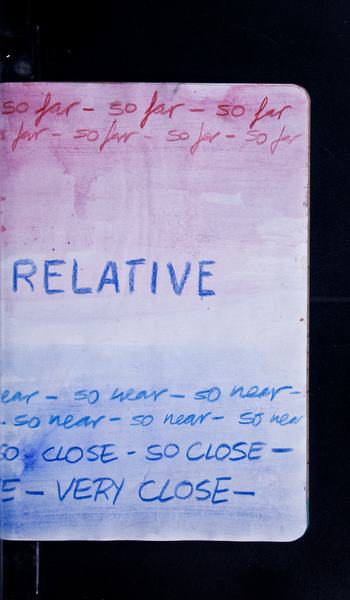 so far - so far - so far
far - so far - so far - so far
RELATIVE
ear - so near - so near -
- so near - so near - so near
SO CLOSE - SO CLOSE -
E - VERY CLOSE -